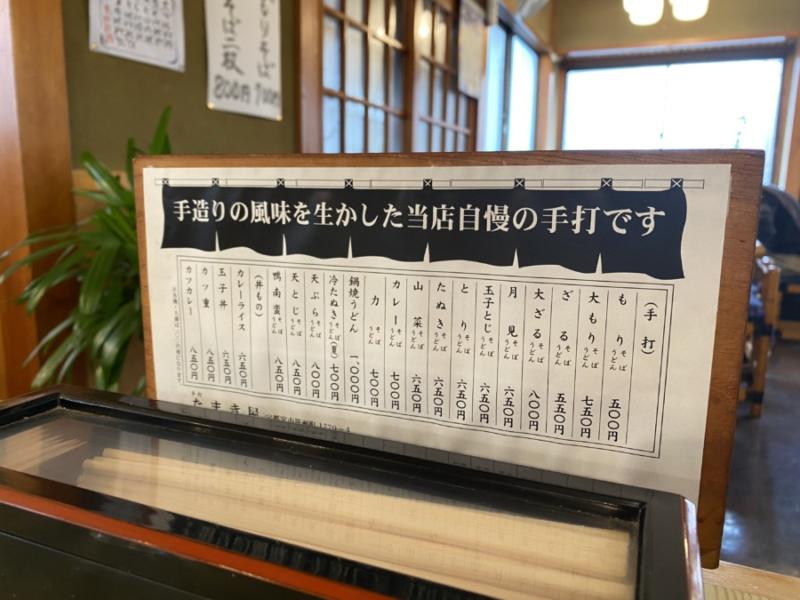 手造りの風味を生かした当店自慢の手打です
(手打)
もり そば うどん 五〇〇円
大もり そば うどん 七五〇円
ざる そば うどん 五五〇円
大ざる そば うどん 八〇〇円
月見 そば うどん 六五〇円
玉子とじ そば うどん 六五〇円
とり そば うどん 六五〇円
たぬき そば うどん 六五〇円
山菜 そば うどん 六五〇円
カレー そば うどん 七〇〇円
力 そば うどん 七〇〇円
鍋焼うどん 一、〇〇〇円
冷たぬき そば うどん (夏) 七〇〇円
天ぷら そば うどん 八〇〇円
天とじ そば うどん 八五〇円
鴨南蛮 そば うどん 八五〇円
(丼もの)
カレーライス 六五〇円
玉子丼 六五〇円
カツ重 八五〇円
カツカレー 八五〇円
もりそば 700円
そば二枚 800円